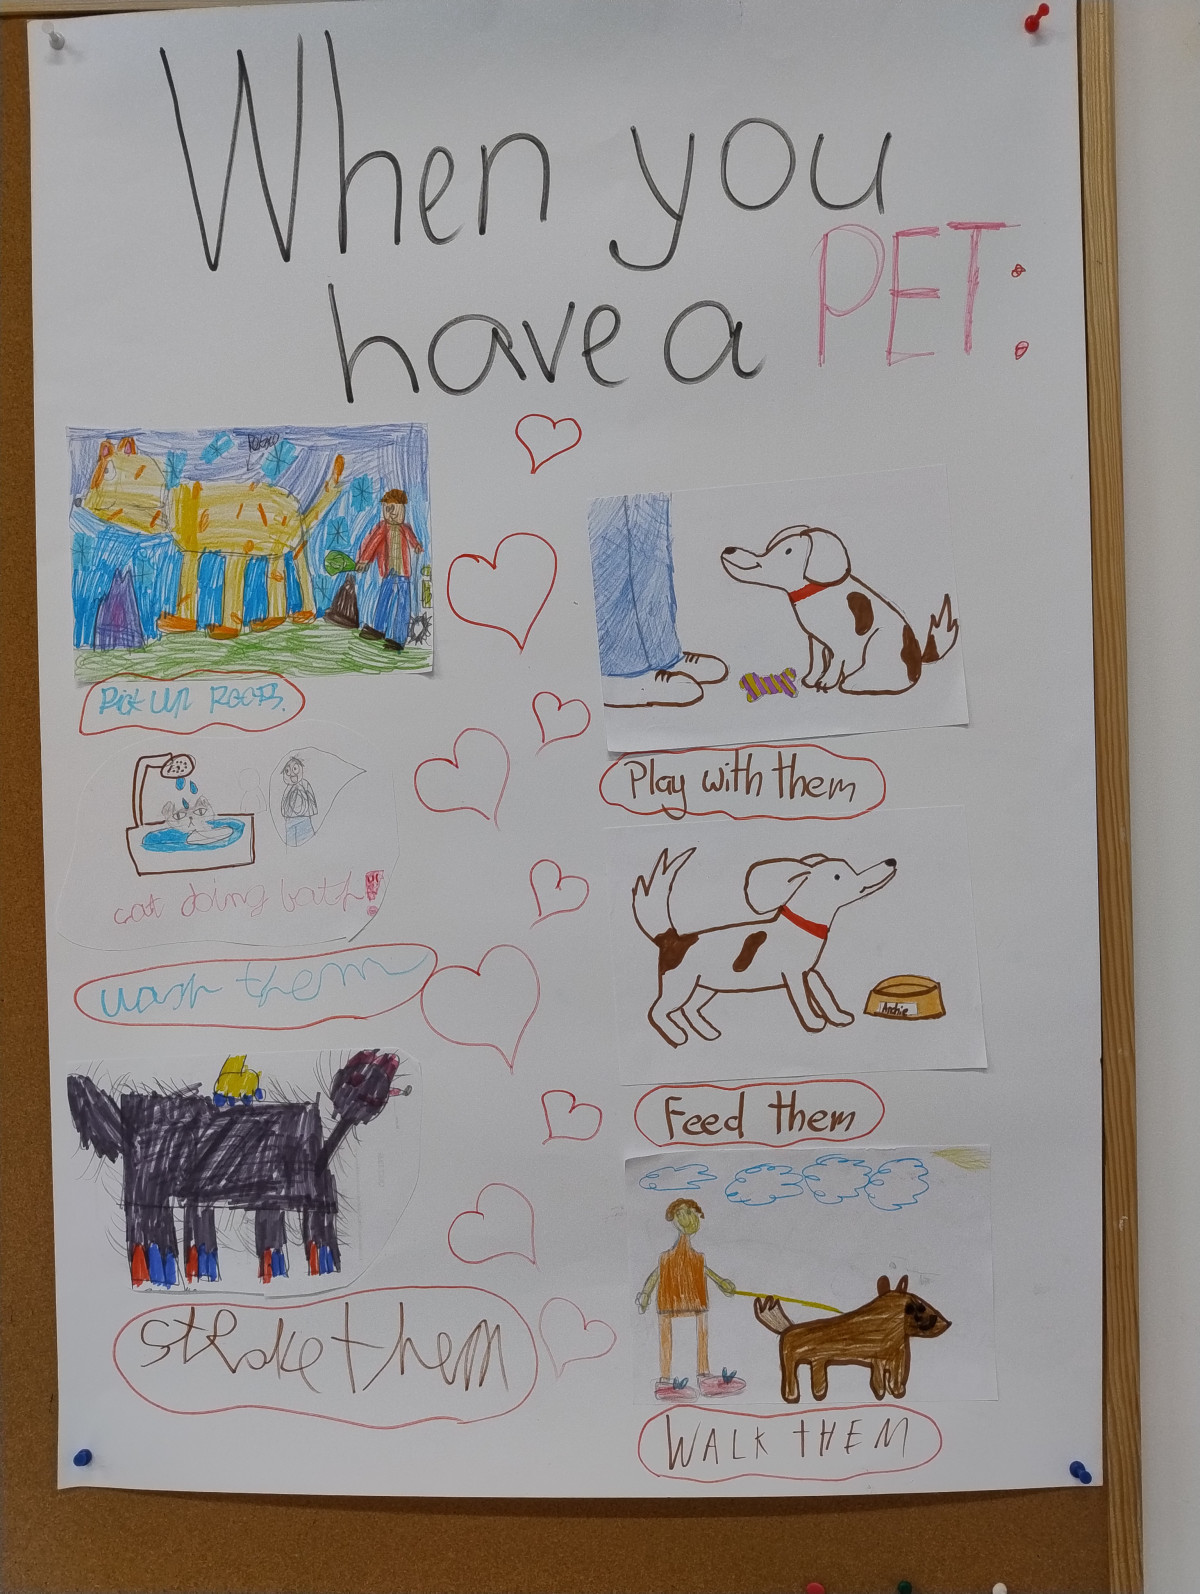 When you
have a PET:
Pick up Poops.
cat doing bath!
wash them
stroke them
Play with them
Archie
Feed them
WALK THEM